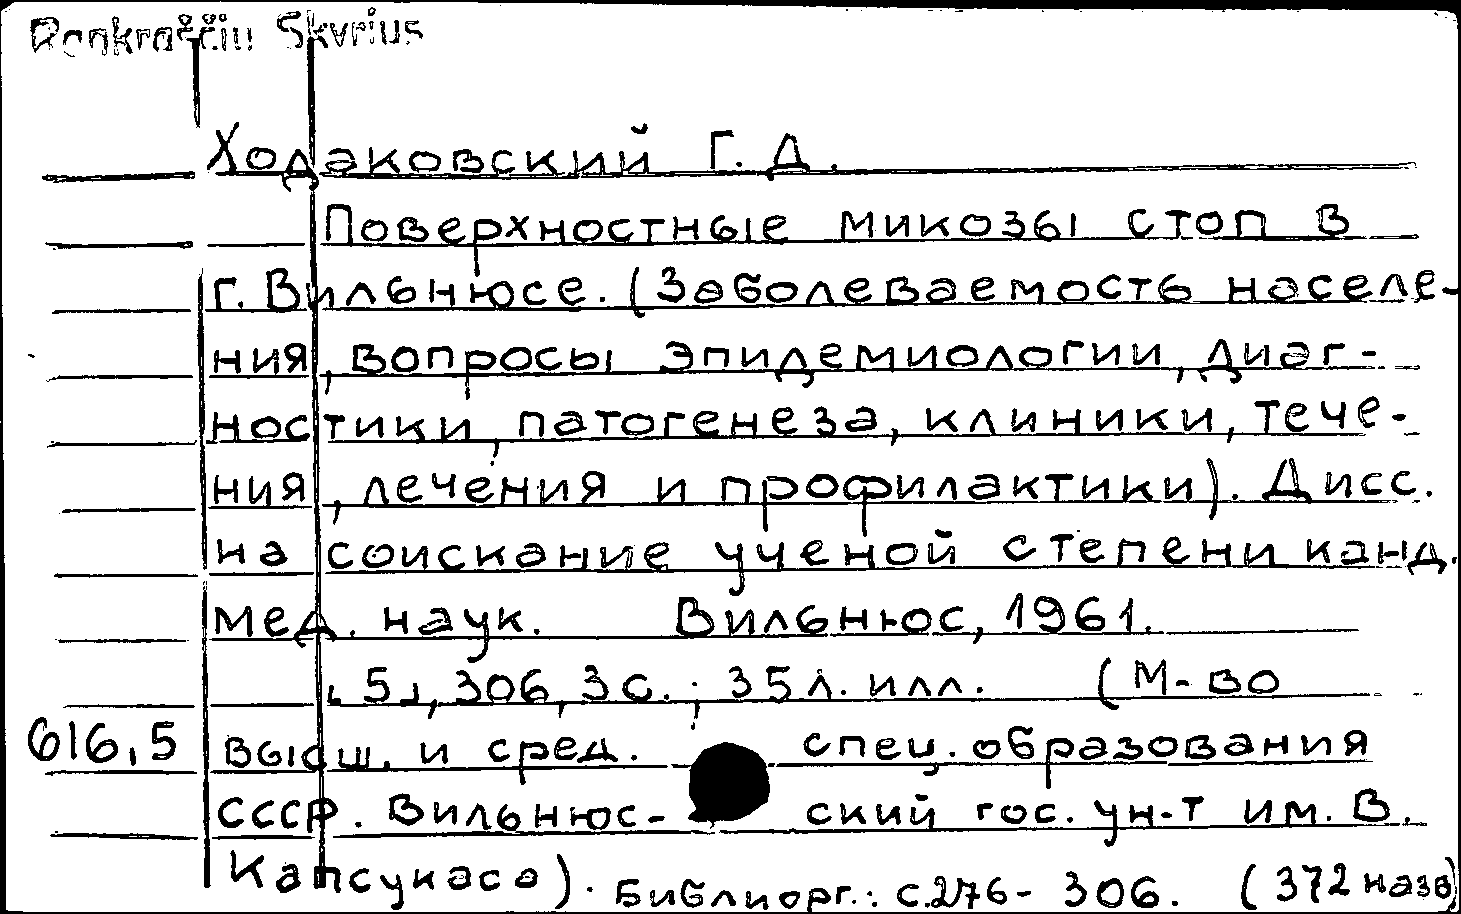 Rankraščių Skyrius
Ходаковский Г. Д.
Поверхностные микозы стоп в
г. Вильнюсе. (Заболеваемость населе-
ния, вопросы эпидемиологии, диаг-
ностики, патогенеза, клиники, тече-
ния, лечения и профилактики). Дисс.
на соискание ученой степени канд.
мед. наук. Вильнюс, 1961.
[5], 306, 3 с.; 35 л. илл. (М-во
616,5 высш. и сред. спец. образования
СССР. Вильнюс- ский гос. ун-т им. В.
Капсукаса). Библиогр.: с. 276-306. (372 назв)